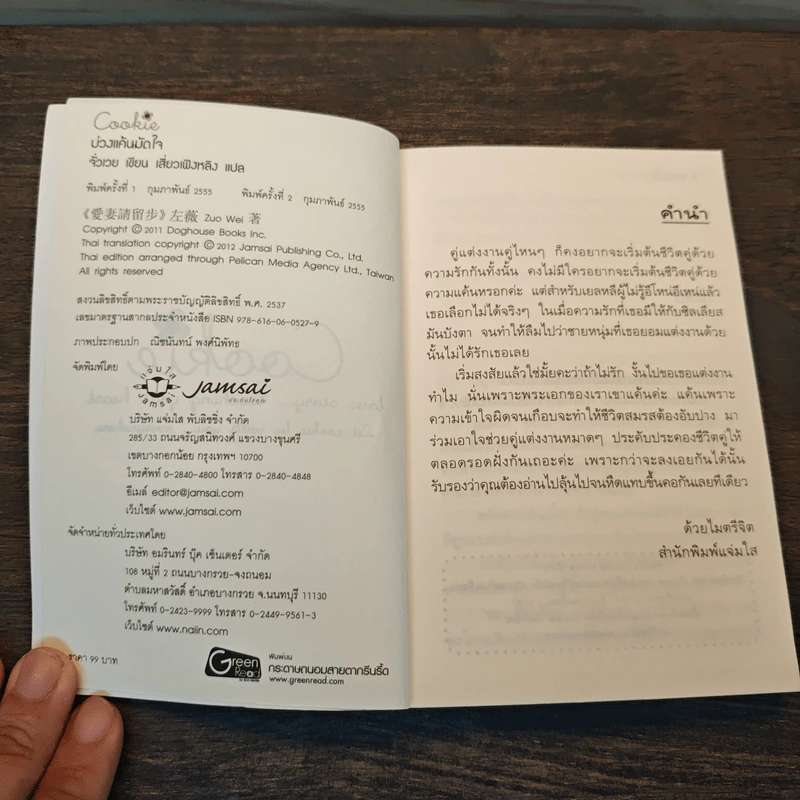 Cookie
บ่วงแค้นมัดใจ
จั่วเวย เขียน เสี่ยวเฟิงหลิง แปล
พิมพ์ครั้งที่ 1 กุมภาพันธ์ 2555 พิมพ์ครั้งที่ 2 กุมภาพันธ์ 2555
《愛妻請留步》左薇 Zuo Wei 著
Copyright © 2011 Doghouse Books Inc.
Thai translation copyright © 2012 Jamsai Publishing Co., Ltd.
Thai edition arranged through Pelican Media Agency Ltd., Taiwan
All rights reserved
สงวนลิขสิทธิ์ตามพระราชบัญญัติลิขสิทธิ์ พ.ศ. 2537
เลขมาตรฐานสากลประจำหนังสือ ISBN 978-616-06-0527-9
ภาพประกอบปก ณิชนันทน์ พงศ์นิพัทธ
จัดพิมพ์โดย
แจ่มใส
Jamsai
jamsai
บริษัท แจ่มใส พับลิชชิ่ง จำกัด
285/33 ถนนจรัญสนิทวงศ์ แขวงบางขุนศรี
เขตบางกอกน้อย กรุงเทพฯ 10700
โทรศัพท์ 0-2840-4800 โทรสาร 0-2840-4848
อีเมล์ editor@jamsai.com
เว็บไซต์ www.jamsai.com
จัดจำหน่ายทั่วประเทศโดย
บริษัท อมรินทร์ บุ๊ค เซ็นเตอร์ จำกัด
108 หมู่ที่ 2 ถนนบางกรวย-จงถนอม
ตำบลมหาสวัสดิ์ อำเภอบางกรวย จ.นนทบุรี 11130
โทรศัพท์ 0-2423-9999 โทรสาร 0-2449-9561-3
เว็บไซต์ www.naiin.com
ราคา 99 บาท
Green
Read
พิมพ์บน
กระดาษถนอมสายตากรีนรี้ด
www.greenread.com
คำนำ
คู่แต่งงานคู่ไหนๆ ก็คงอยากจะเริ่มต้นชีวิตคู่ด้วย
ความรักกันทั้งนั้น คงไม่มีใครอยากจะเริ่มต้นชีวิตคู่ด้วย
ความแค้นหรอกค่ะ แต่สำหรับเยลหลีผู้ไม่รู้อีโหน่อีเหน่แล้ว
เธอเลือกไม่ได้จริงๆ ในเมื่อความรักที่เธอมีให้กับซิลเลียส
มันบังตา จนทำให้ลืมไปว่าชายหนุ่มที่เธอยอมแต่งงานด้วย
นั้นไม่ได้รักเธอเลย
เริ่มสงสัยแล้วใช่มั้ยคะว่าถ้าไม่รัก งั้นไปขอเธอแต่งงาน
ทำไม นั่นเพราะพระเอกของเราเขาแค้นค่ะ แค้นเพราะ
ความเข้าใจผิดจนเกือบจะทำให้ชีวิตสมรสต้องอับปาง มา
ร่วมเอาใจช่วยคู่แต่งงานหมาดๆ ประคับประคองชีวิตคู่ให้
ตลอดรอดฝั่งกันเถอะค่ะ เพราะกว่าจะลงเอยกันได้นั้น
รับรองว่าคุณต้องอ่านไปลุ้นไปจนหืดแทบขึ้นคอกันเลยทีเดียว
ด้วยไมตรีจิต
สำนักพิมพ์แจ่มใส